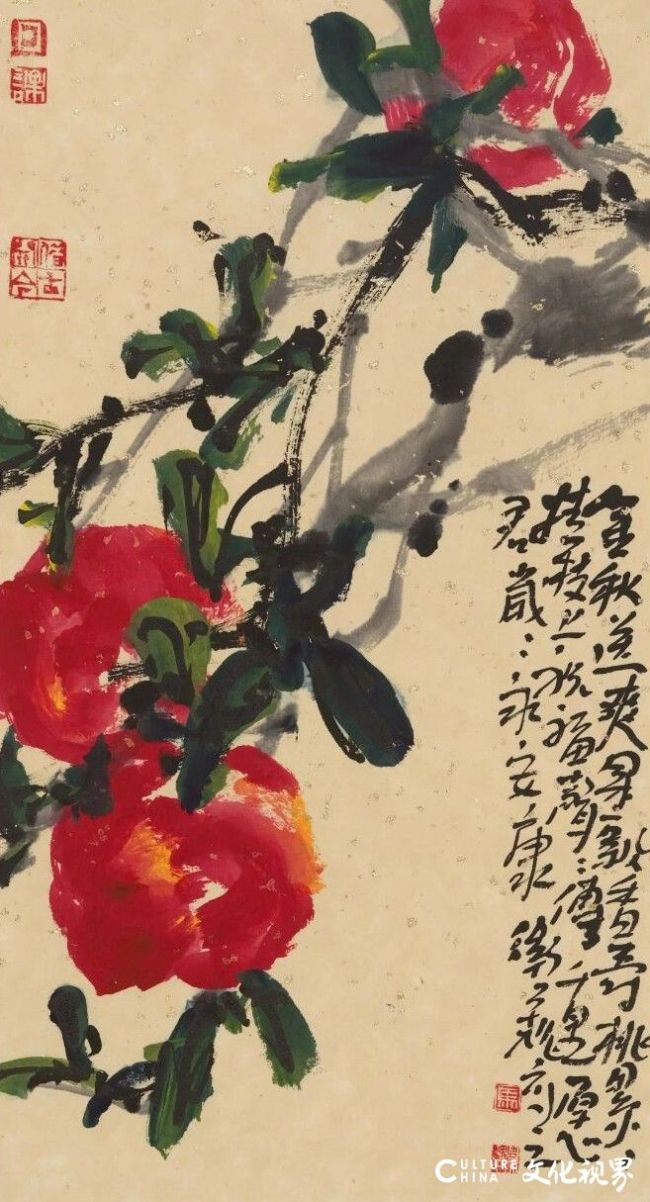 金秋送爽果飘香寿桃累〻
挂枝上祝福声〻传千里愿
君岁〻永安康
CULTURE
CHINA
文化视界